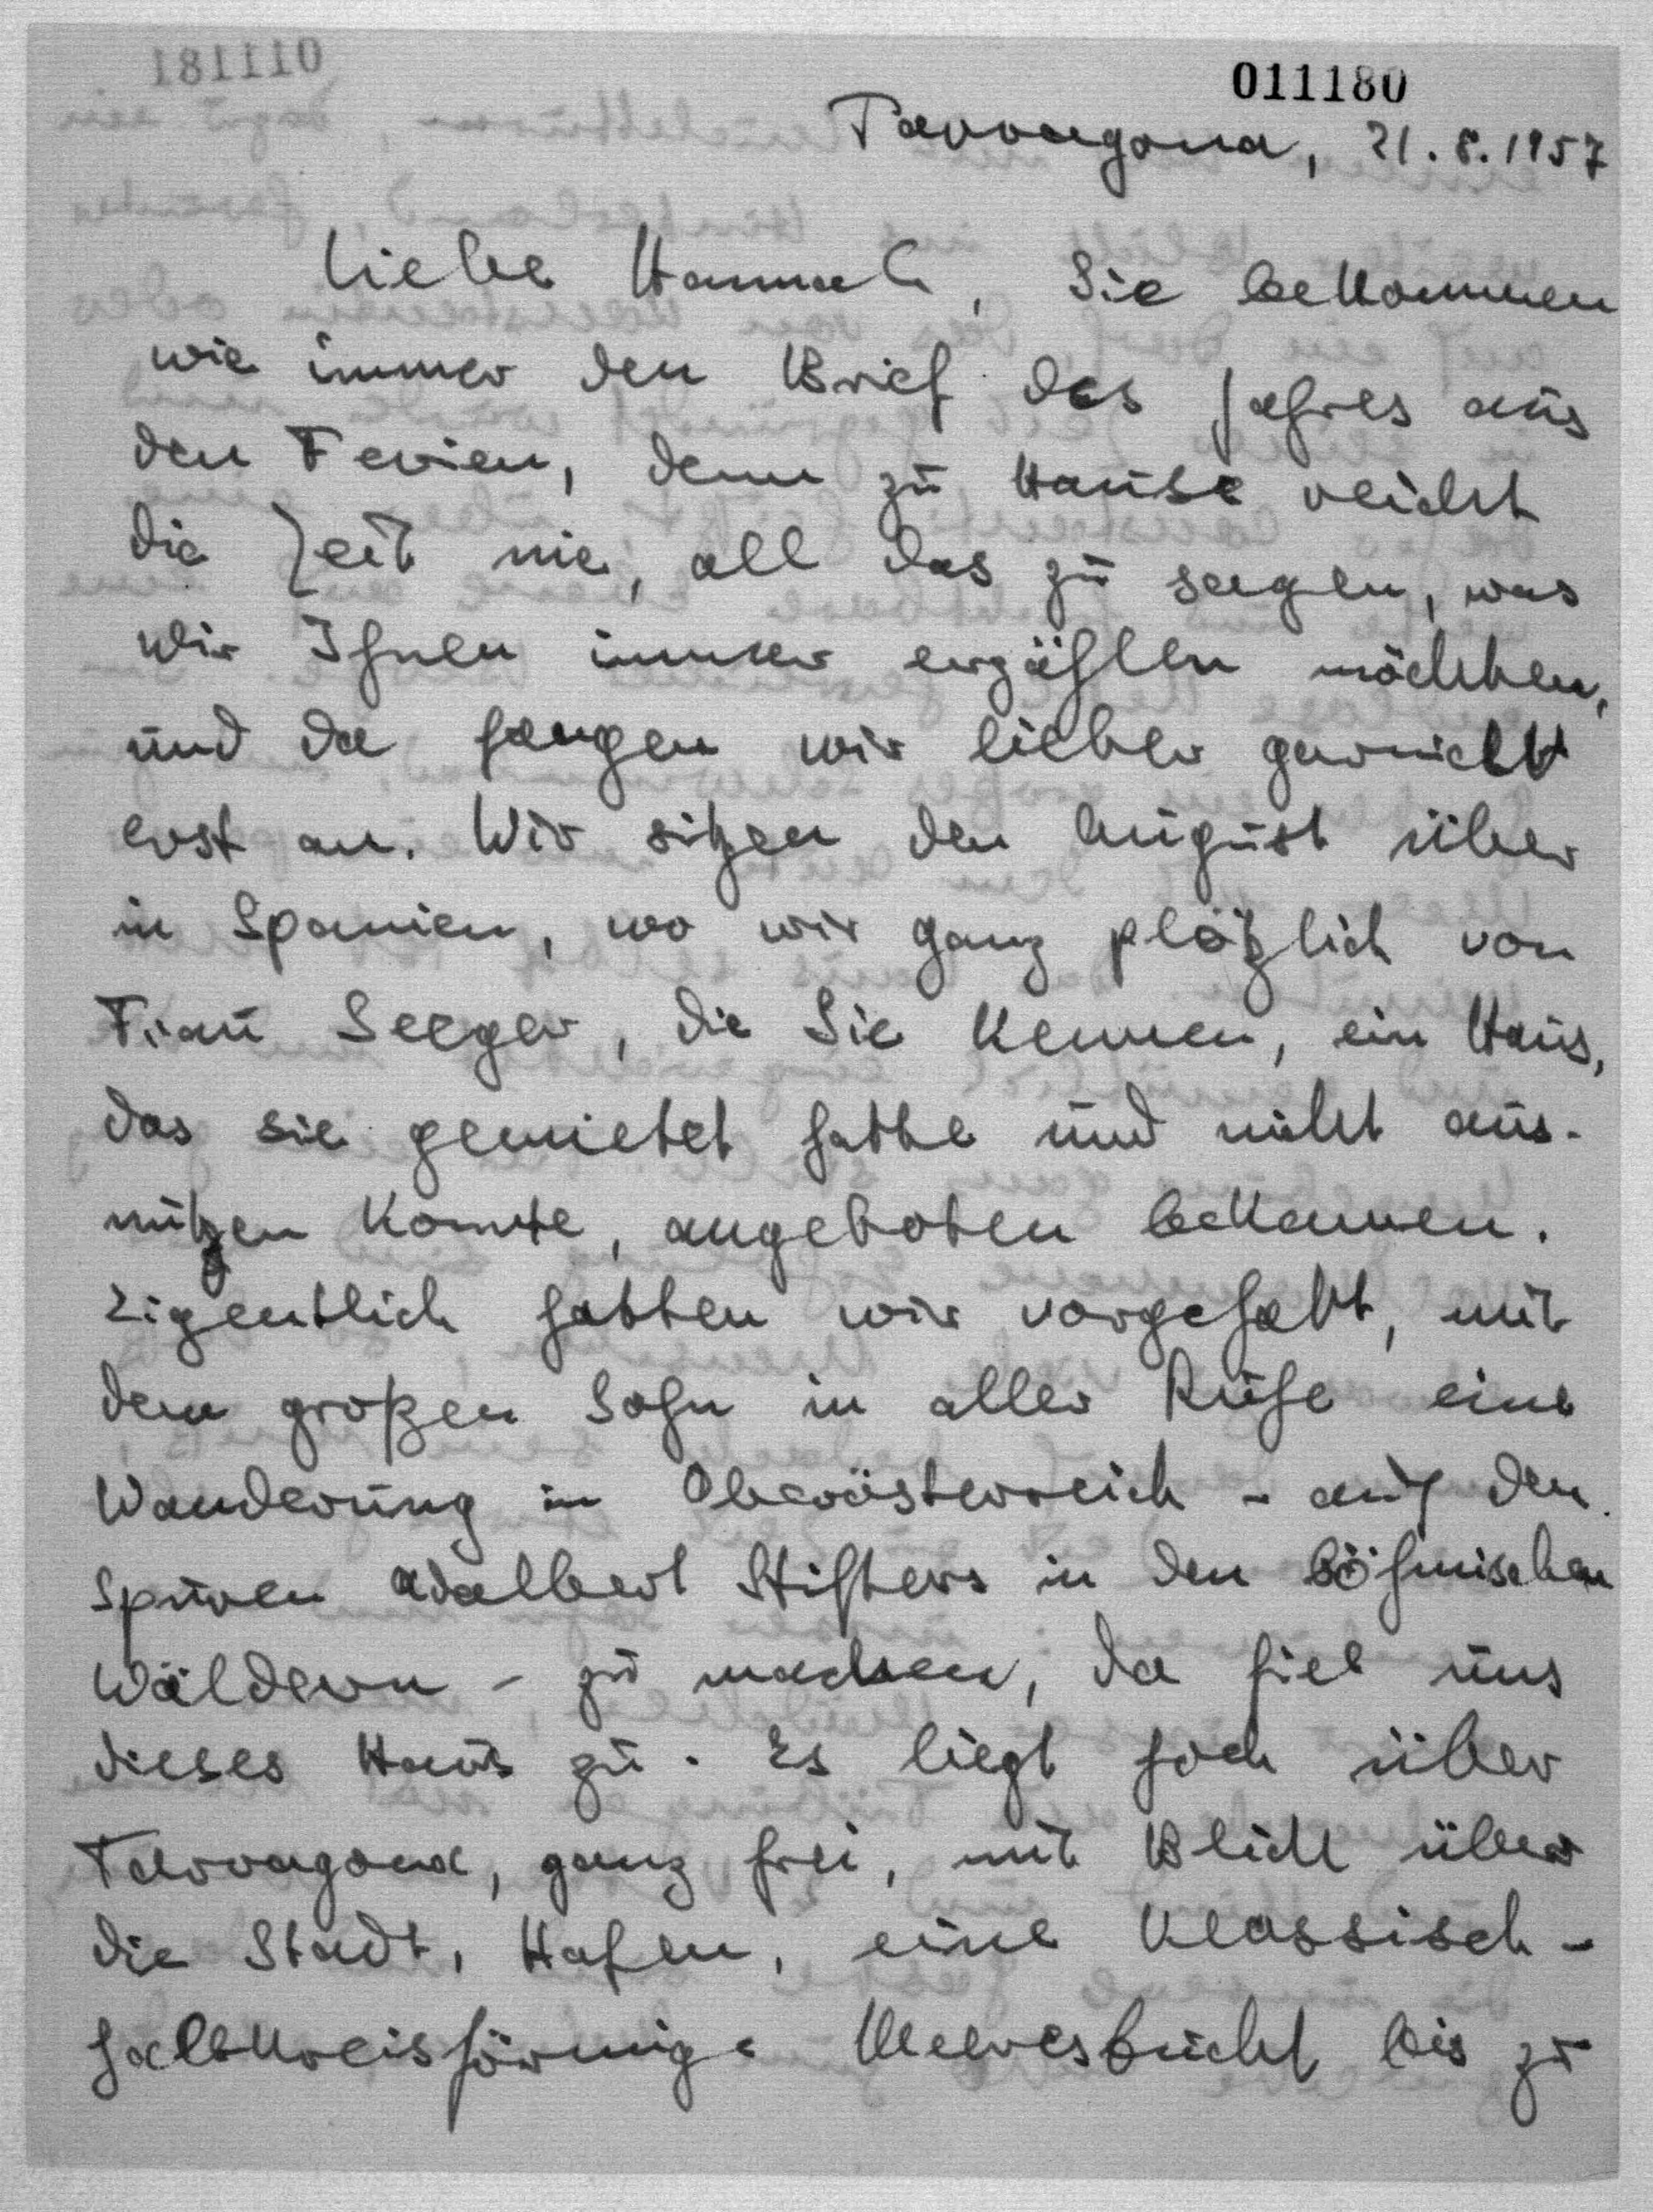 011180
Tarragona, 21.8.1957
Liebe Hannah, Sie bekommen
wie immer den Brief des Jahres aus
den Ferien, denn zu Hause reicht
die Zeit nie, all das zu sagen, was
wir Ihnen immer erzählen möchten,
und da fangen wir lieber garnicht
erst an. Wir sitzen den August über
in Spanien, wo wir ganz plötzlich von
Frau Seeger, die Sie kennen, ein Haus,
das sie gemietet hatte und nicht aus-
nützen konnte, angeboten bekamen.
Eigentlich hatten wir vorgehabt, mit
dem großen Sohn in aller Ruhe eine
Wanderung in Oberösterreich - auf den
Spuren Adalbert Stifters in den böhmischen
Wäldern - zu machen, da fiel uns
dieses Haus zu. Es liegt hoch über
Tarragona, ganz frei, mit Blick über
die Stadt, Hafen, eine klassisch-
halbkreisförmige Meeresbucht bis zu